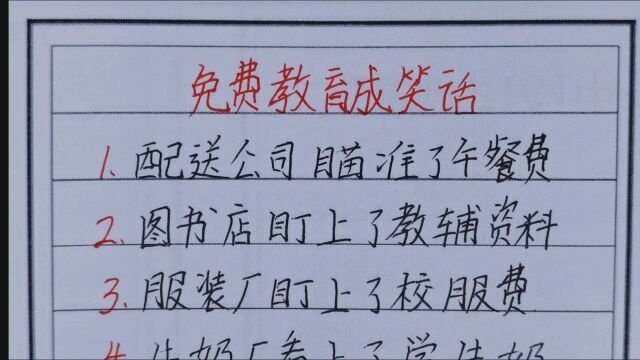 免费教育成笑话
1.配送公司瞄准了午餐费
2.图书店盯上了教辅资料
3.服装厂盯上了校服费
4.牛奶厂看上了学生奶